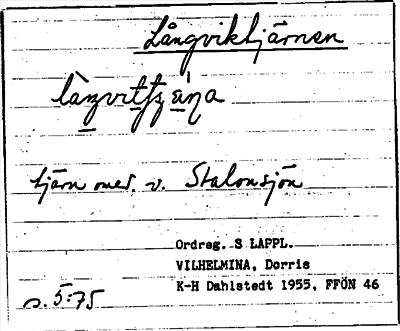 Långviktjärnen
tjärn omed. v. Stalonsjön
Ordreg. S LAPPL.
VILHELMINA, Dorris
K-H Dahlstedt 1955, FFÖN 46
s. 5:75